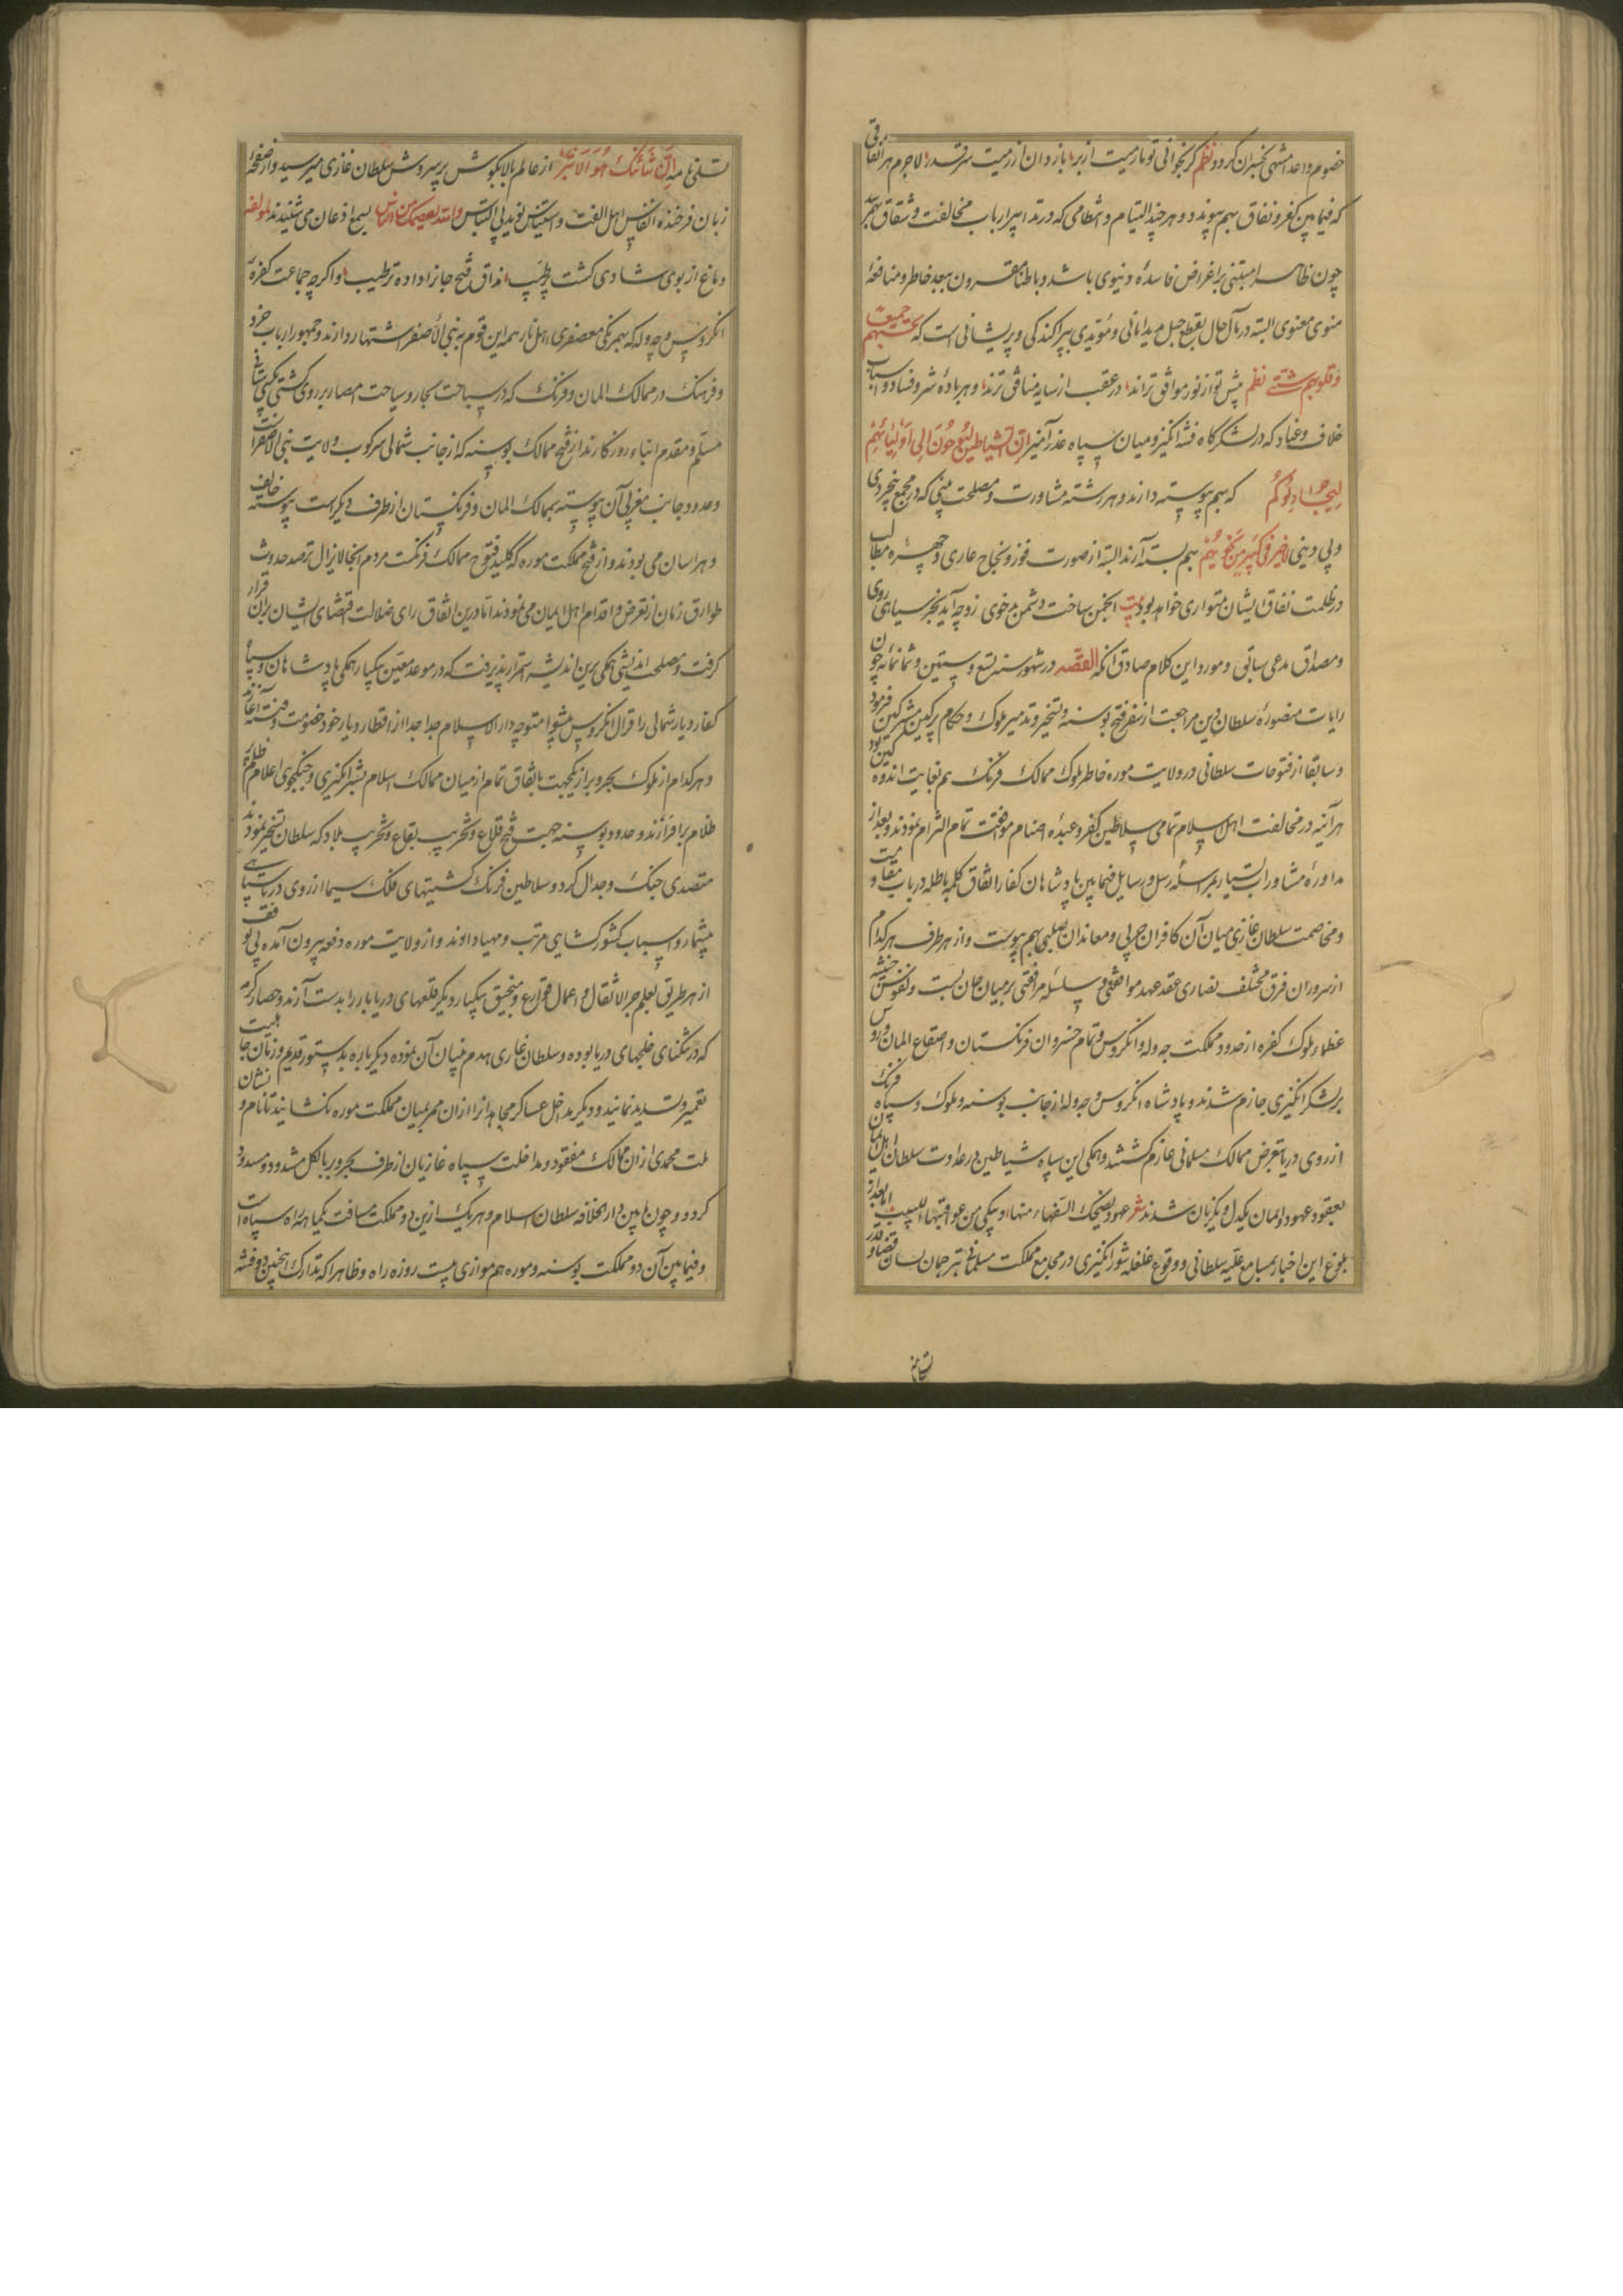 خصوم داعد منتهی بخسران کردد نظم کر بخوانی تو بازیست از بر باز دان از زمیت سر قدر لاجرم هر اتفاقی
که فیما بین کفر و نفاق بهم پیوندد و هر چند التیام و انتظامی که در تدابیر ارباب مخالفت و شقاق بهم رسد
چون ظاهرا مبتنی بر اغراض فاسدهٔ دنیوی باشد و باطنا مقرون ببعد خاطر و منافعهٔ
منوی معنوی البته در مآل حال بقطع حبل و مؤدی بپراکندکی و پریشانی است که تحسبهم جمیعا
و قلوبهم شتی نظم پیش تو از نور موافق‌ترند در عقب از سایه منافق‌ترند و هر مادهٔ شر و فساد و اسباب
خلاف و عناد که در لشکرکاه فتنه انکیز و میان سپاه غدر آمیز ان الشیاطین لیوحون الی اولیائهم
لیجادلوکم که بهم پیوسته دارند و هر رشته مشاورت و مصلحت بینی که در مجمع بیخردی
و بی دینی لا خیر فی کثیر من نجویهم بهم بسته آرند البته از صورت فوز و نجاح عاری و چهرهٔ مطالب
در ظلمت نفاق ایشان متواری خواهد بود بیت انجمن ساخت دشمن بدخوی زو چه آید بجز سیاهی روی
و مصداق مدعی سابق و مورد این کلام صادق آنکه القصه در شهور سنه تسع و ستین و ثمانمائه چون
رایات منصورهٔ سلطان دین مراجعت از سفر فتح بوسنه و تسخیر و تدمیر ملوک و حکام پر کین مشرکین فرمود
و سابقا از فتوحات سلطانی در ولایت موره خاطر ملوک ممالک فرنک هم بغایت اندوه کین بود
هر آینه در مخالفت اهل اسلام تمامی سلاطین کفر و عبدهٔ اصنام موافقت تمام التزام نمودند و بعد از
مداورهٔ مشاورات بسیار بمراسلهٔ رسل و رسایل فیما بین پادشاهان کفار اتفاق کلمهٔ باطله در باب مقاومت
و مخاصمت سلطان غازی میان آن کافران حربی و معاندان صلیبی بهم پیوست و از هر طرف هر کدام
از سروران فرق مختلف نصاری عقد عهد موافقتی و سلسلهٔ مرافقتی بر میان جان بست و نفوس خبیثه
عظماء ملوک کفره از حدود مملکت چه و له و انکروس و تمام خسروان فرنکستان و اصقاع المان و روس
بر لشکر انکیزی جازم شدند و پادشاه انکروس و چه و له از جانب بوسنه و ملوک و سپاه فرنک
از روی دریا بتعرض ممالک مسلمانی عازم کشتند و همکی این سپاه شیاطین در عداوت سلطان اهل ایمان
بعقود عهود و ایمان یکدل و یکزبان شدند شعر عهود یضحک السفهاء منها و یبکی من عواقبها اللبیب اما بعد از
بلوغ این اخبار بمسامع علیه سلطانی و وقوع غلغله شور انکیزی در مجامع مملکت مسلمانی ترجمان لسان قضا و قدر
تسلی نامه ان شانئک هو الابتر از عالم بالا بکوش پر سروش سلطان غازی میرسید و از صفحهٔ
زبان فرخنده انفاس اهل الفت و استیناس نوید بی التباس والله یعصمک من الناس بسمع اذعان می شنیدند لمولفه
دماغ از بوی شادی کشت پر طیب مذاق فتح جانرا داده ترطیب و اکرچه جماعت کفرهٔ
انکروس و چه و له که بهمرنکی معصفری اهل نار همه این قوم به بنی الأصفر اشتهار دارند و جمهور ارباب خرد
و فرهنک در ممالک المان و فرنک که در سباحت بحار و سیاحت امصار بر روی کشتی
مسلم و مقدم ابناء روزکارند از فتح ممالک بوسنه که از جانب شمالی سرکوب ولایت بنی الاصفر است
و حدود جانب غربی آن پیوسته بممالک المان و فرنکستان از طرف دیکر است پیوسته خایف
و هراسان می بودند و از فتح مملکت موره که کلید فتوح ممالک فرنکست مردم آنجا لایزال ترصد حدوث
طوارق زمان از تعرض و اقدام اهل ایمان می نمودند اما درین اتفاق رای ضلالت اقتضای ایشان بران قرار
کرفت و مصلحت اندیشی همکی برین اندیشه استمرار پذیرفت که در موعد معین بیکبار همکی پادشاهان و سپاه
کفار دیار شمالی را قرال انکروس پیشوا متوجه دار الاسلام جدا جدا از اقطار دیار خود خصومت و فتنه آغازند
و هر کدام از ملوک بحر و بر از یکجهت باتفاق تمام از میان ممالک اسلام بشر انکیزی و جنکجوی اعلام ظلم
ظلام بر افرازند و حدود بوسنه جهت فتح قلاع و تخریب بقاع و تخریب بلاد که سلطان تسخیر نمودند
متصدی جنک و جدال کردد و سلاطین فرنک کشتیهای فلک سیما از روی دریا با سپاهی
بیشمار و اسباب کشورکشایی مرتب و مهیا داوند و از ولایت موره دفعه بیرون آمده بی توقف
از هر طریق بعلم جر الاثقال و اعمال قوارع و منجنیق بیکبار دیکر قلعهای دریابار را بدست آرند و حصار کرمه
که در تنکنای خلیجهای دریا بوده و سلطان غازی هدم بنیان آن نموده دیکر باره بدستور قدیم و زمان جاهلیت
تعمیر و تسدید نمایند و دیکر مداخل عساکر مجاهدانرا از آن ممر بمیان مملکت موره نکشایند تا نام و نشان
ملت محمدی از ان ممالک مفقود و مداخلت سپاه غازیان از طرف بحر و بر بالکل مشدود و مسدود
کردد و چون ما بین دار الخلافه سلطان اسلام و هر یک ازین دو مملکت مسافت یکماهه راه سپاه است
و فیما بین آن دو مملکت بوسنه و موره هم موازی بیست روزه راه و ظاهرا که تدارک اینچنین دو فتنه
تسلی نامه